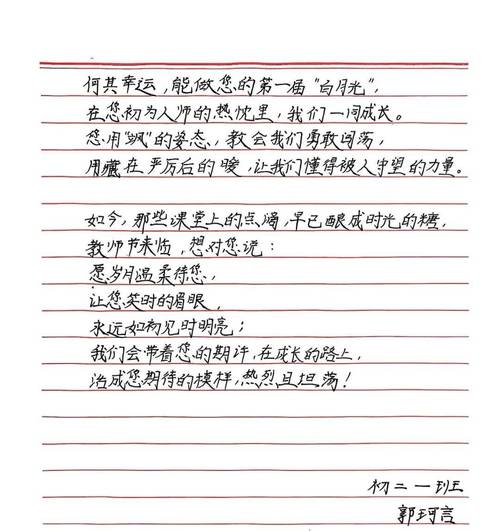 何其幸运，能做您的第一届“白月光”，
在您初为人师的热忱里，我们一同成长。
您用“飒”的姿态，教会我们勇敢闯荡，
用藏在严厉后的暖，让我们懂得被人守望的力量。
如今，那些课堂上的点滴，早已酿成时光的糖，
教师节来临，想对您说：
愿岁月温柔待您，
让您笑时的眉眼，
永远如初见时明亮；
我们会带着您的期许，在成长的路上，
活成您期待的模样，热烈且坦荡！
初二一班
郭珂言